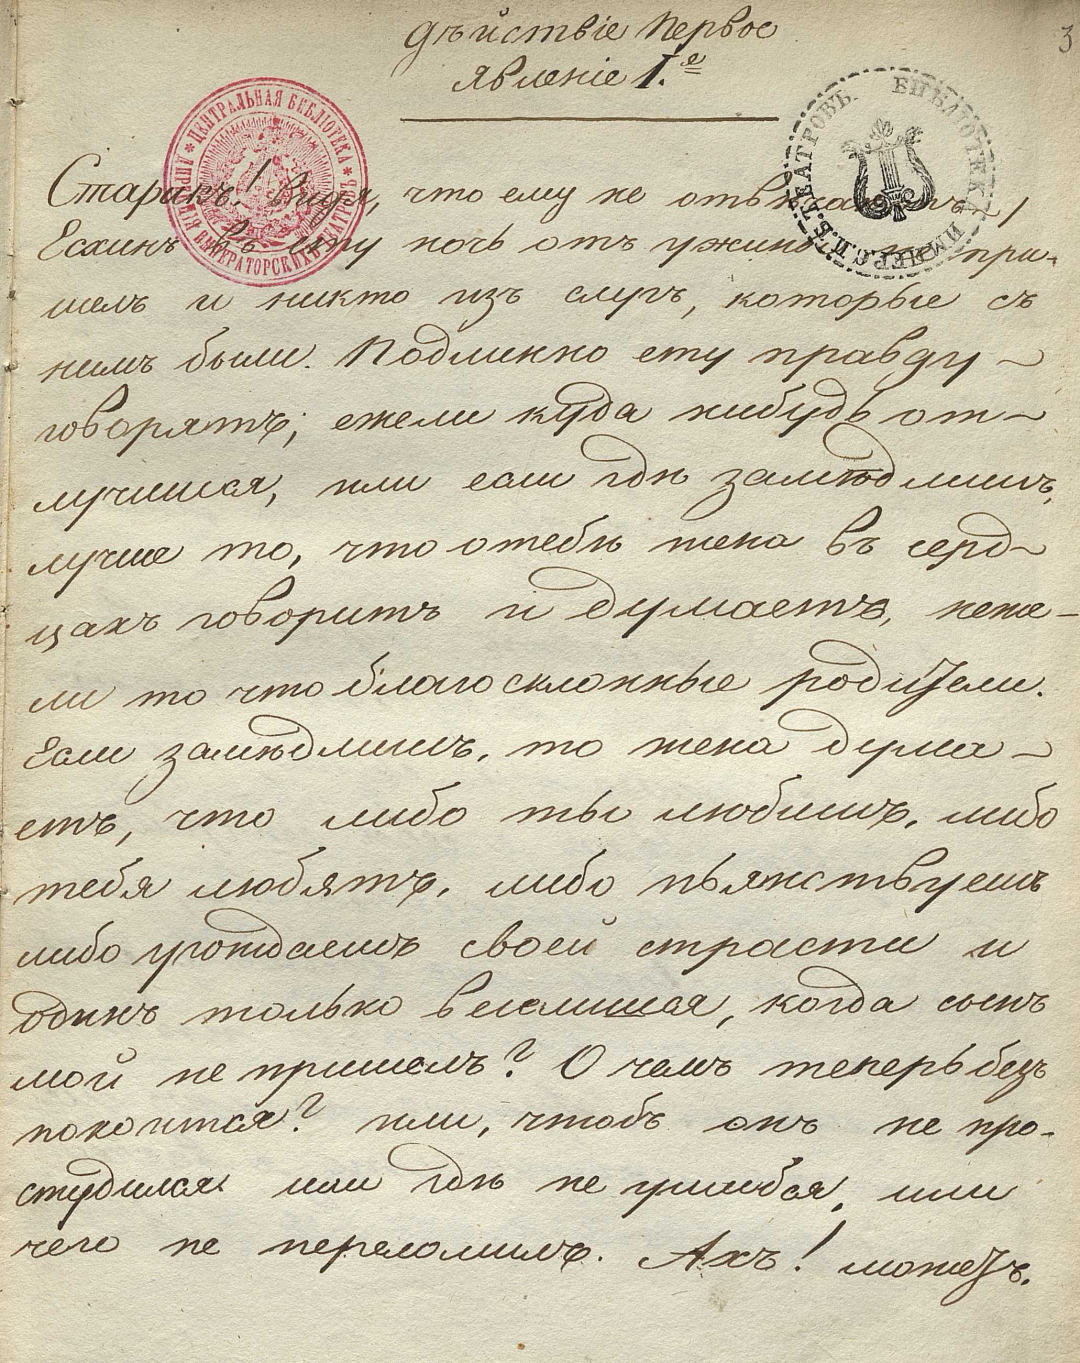 дѣйствіе первое
явленіе I.е
3
ЦЕНТРАЛЬНАЯ БИБЛІОТЕКА
ИМПЕРАТОРСКИХЪ ТЕАТРОВЪ
БИБЛІОТЕКА ИМПЕР. С.П.Б. ТЕАТРОВЪ
Старакъ! видя, что ему не отвѣчаютъ /
Есхинъ въ сту ночь отъ ужина не при-
шелъ и никто изъ слугъ, которые съ
нимъ были. Подлинно ету правду
говорятъ; ежели куда нибудь от-
лучишся, или если гдѣ замѣдлишъ,
лучше то, что о тебѣ жена въ серд-
цахъ говоритъ и думаетъ, неже-
ли то что благосклонные родители.
Если замѣдлишъ, то жена дума-
етъ, что либо ты любишъ, либо
тебя любятъ, либо пьянствуешъ
либо угождаешъ своей страсти и
одинъ только веселишся, когда сынъ
мой не пришелъ? О чемъ теперь без
покоится? или, чтобъ онъ не про-
студился или гдѣ не ушибся, или
чего не переломилъ. Ахъ! можетъ.